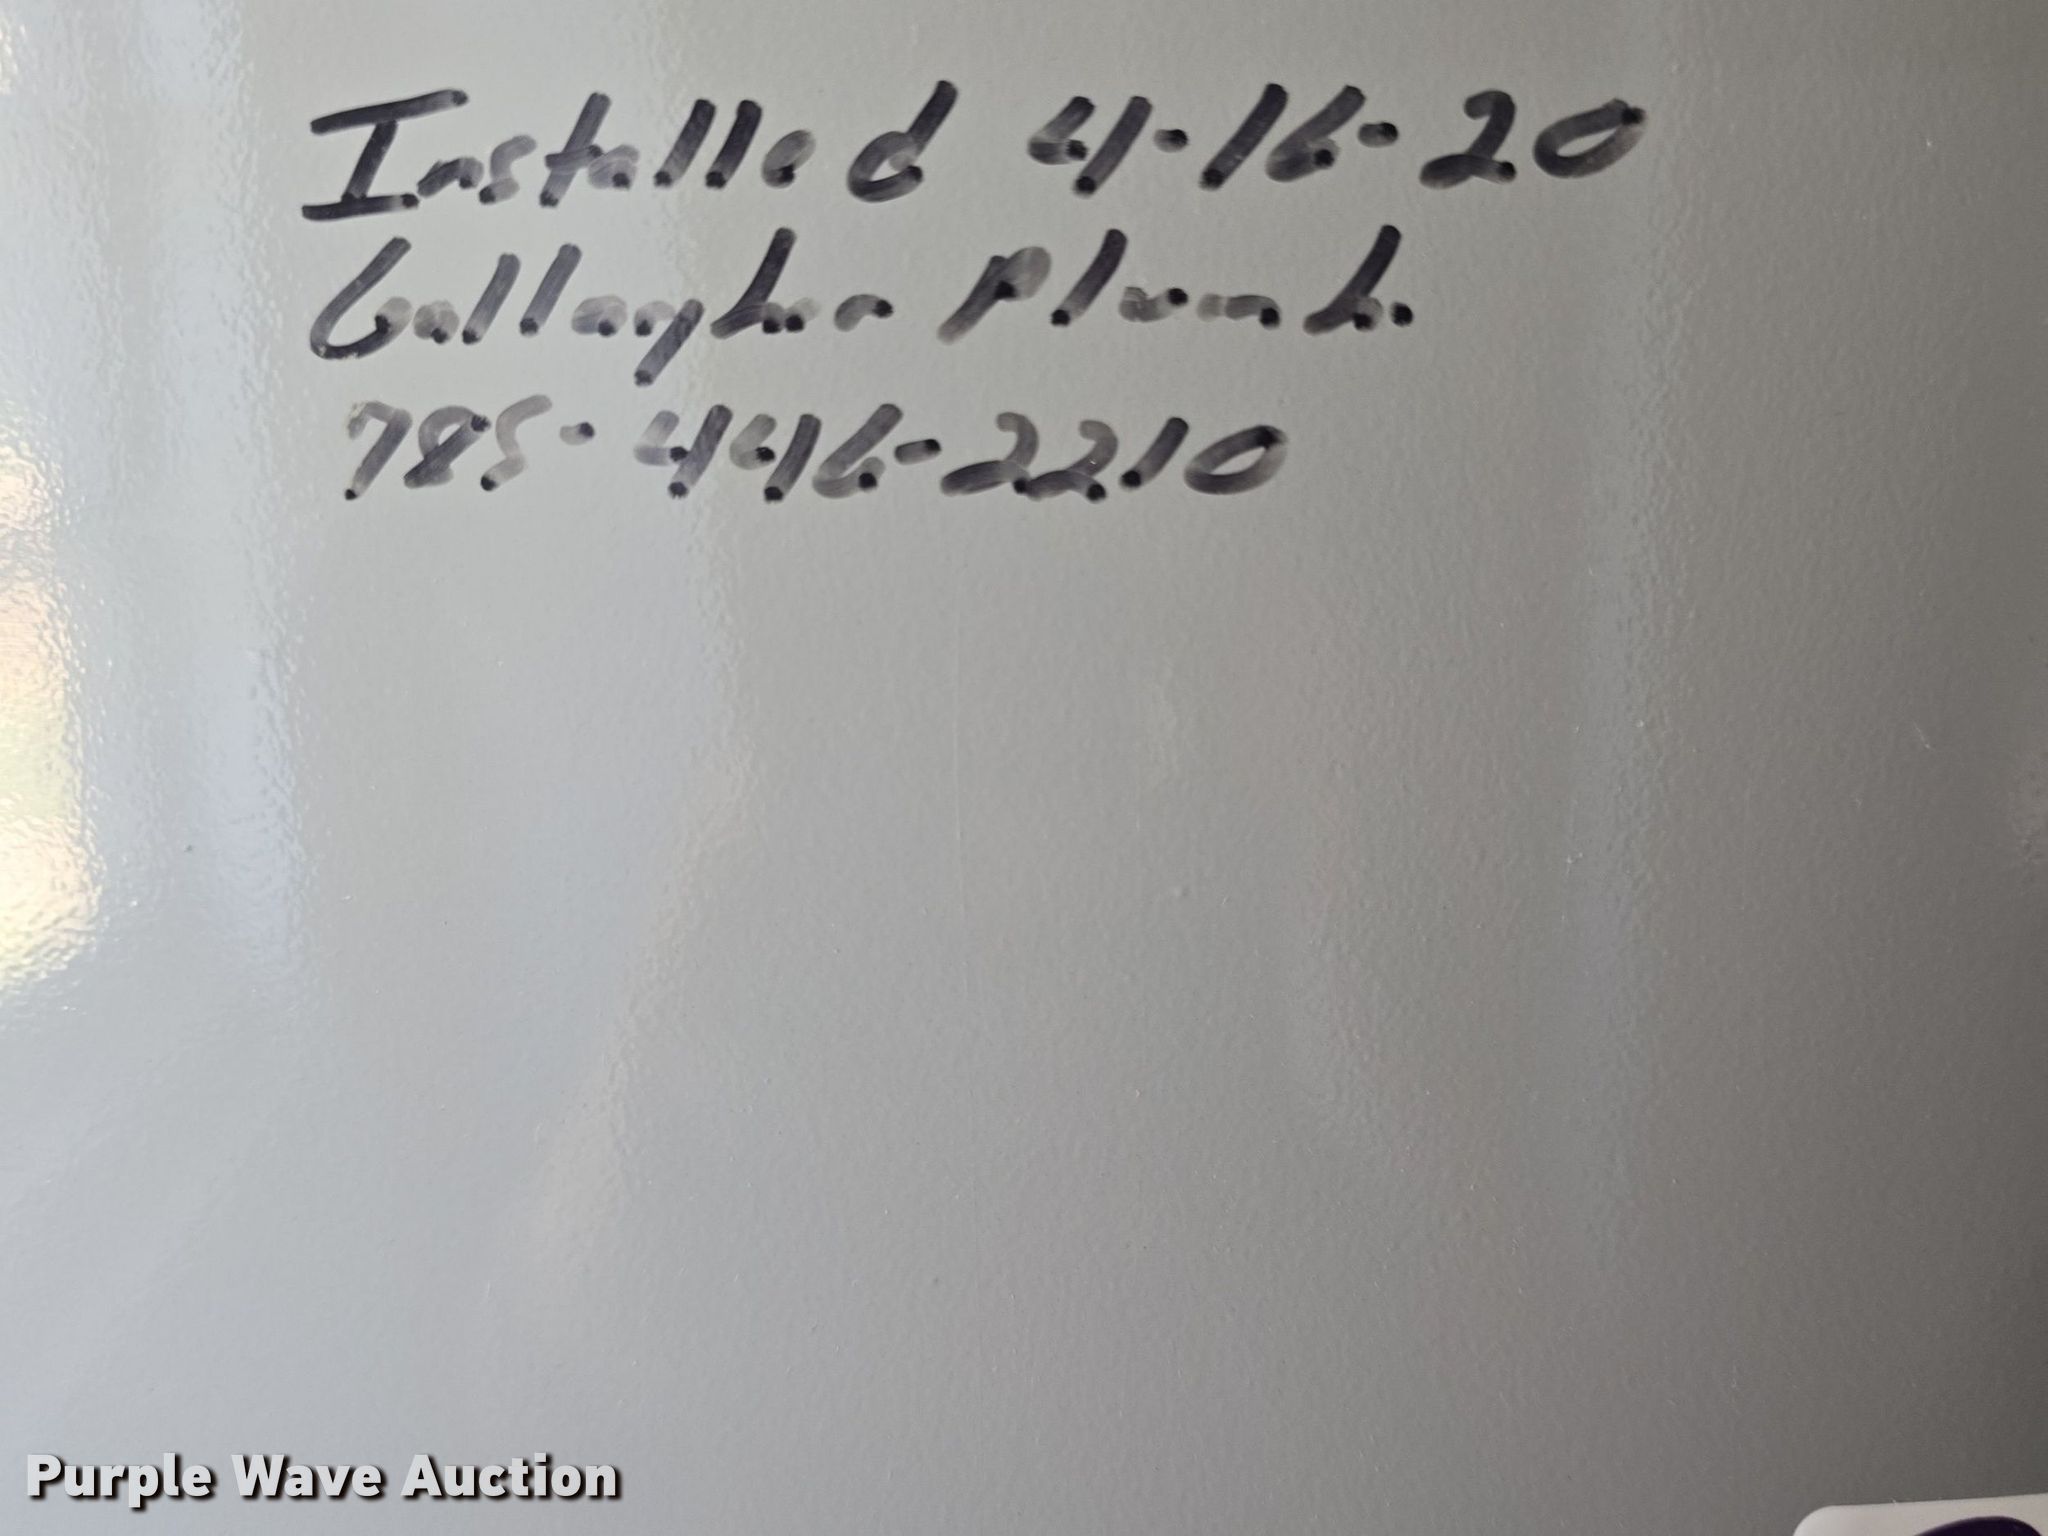 Installed 4-16-20
Gallagher Plumb.
785-446-2210
Purple Wave Auction